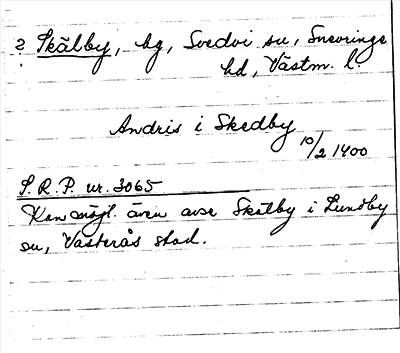 ? Skälby, by, Svedvi sn, Snevringe
hd, Västm. l.
Andris i Skedby
10/2 1400
S. R. P. nr. 3065
Kan möjl. även avse Skälby i Lundby
sn, Västerås stad.